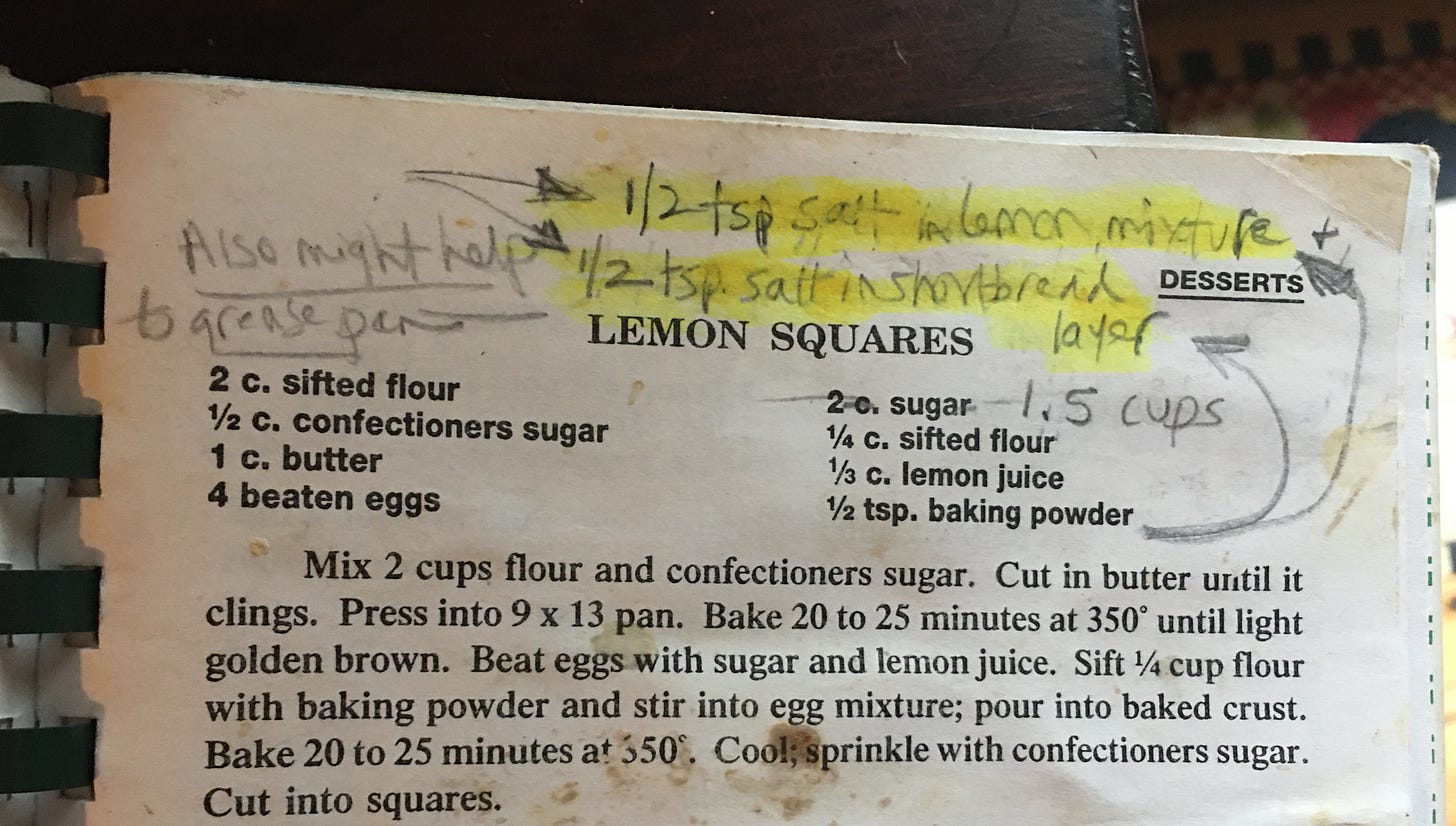 1/2 tsp salt in lemon mixture +
Also might help
to grease pan
1/2 tsp. salt in shortbread
layer
DESSERTS
LEMON SQUARES
2 c. sifted flour
½ c. confectioners sugar
1 c. butter
4 beaten eggs
2 c. sugar 1.5 cups
¼ c. sifted flour
⅓ c. lemon juice
½ tsp. baking powder
Mix 2 cups flour and confectioners sugar. Cut in butter until it
clings. Press into 9 x 13 pan. Bake 20 to 25 minutes at 350° until light
golden brown. Beat eggs with sugar and lemon juice. Sift ¼ cup flour
with baking powder and stir into egg mixture; pour into baked crust.
Bake 20 to 25 minutes at 350°. Cool; sprinkle with confectioners sugar.
Cut into squares.